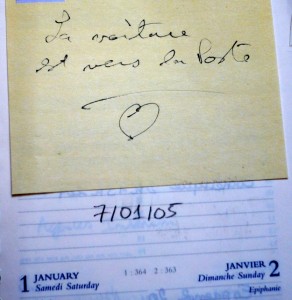 La voiture
est vers la Poste
7/01/05
1 JANUARY
Samedi Saturday
1 : 364 2 : 363
JANVIER 2
Dimanche Sunday
Epiphanie